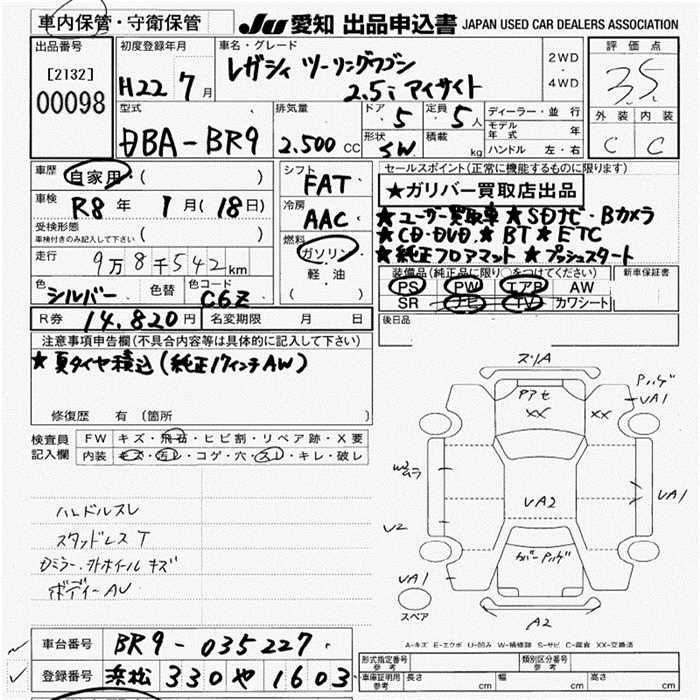 車内保管・守衛保管
JU 愛知 出品申込書 JAPAN USED CAR DEALERS ASSOCIATION
出品番号
[2132]
00098
初度登録年月
H22 7月
車名・グレード
レガシィ ツーリングワゴン
2.5i アイサイト
2WD
・
4WD
評価点
3.5
外装 内装
C C
型式
DBA-BR9
排気量
2.500 CC
ドア 5
定員 5人
形状 SW
積載 kg
ディーラー・並行
モデル年式 年
ハンドル 左・右
車歴
自家用 ( )
車検
R8年 1月(18日)
受検形態
車検付きのみ記入して下さい ( )
走行
9万8千542km
色 シルバー 色替 色コード C6Z
シフト
FAT
冷房
AAC
燃料
ガソリン
軽油
( )
セールスポイント(正常に機能するものに限ります)
★ガリバー買取店出品
★ユーザー買取車 ★SDナビ・Bカメラ
★CD・DVD ★BT ★ETC
★純正フロアマット ★プッシュスタート
装備品(純正品に限り)をつけてください)
PS PW エアB AW
SR ナビ TV カワシート
新車保証書
後日品
R券 14.820円 名変期限 月 日
注意事項申告欄(不具合内容等は具体的に記入して下さい)
★夏タイヤ積込(純正17インチAW)
修復歴 有 (箇所 )
検査員記入欄
FW キズ・飛石・ヒビ割・リペア跡・X要
内装 キズ・汚レ・コゲ・穴・スレ・キレ・破レ
ハンドルスレ
スタッドレス T
Dミラー、外ホイールキズ
ボディーAU
ズリA
XX
XX
VA1
ムラ
VA2
VA1
V2
VA1
スペア
A2
A-キズ E-エクボ U-凹み W-補修跡 S-サビ C-腐食 XX-交換済
車台番号 BR9-035227
登録番号 浜松 330 や 1603
形式指定番号 参考
類別区分番号 参考
車庫証明用 参考 長さ cm 幅 cm 高さ cm